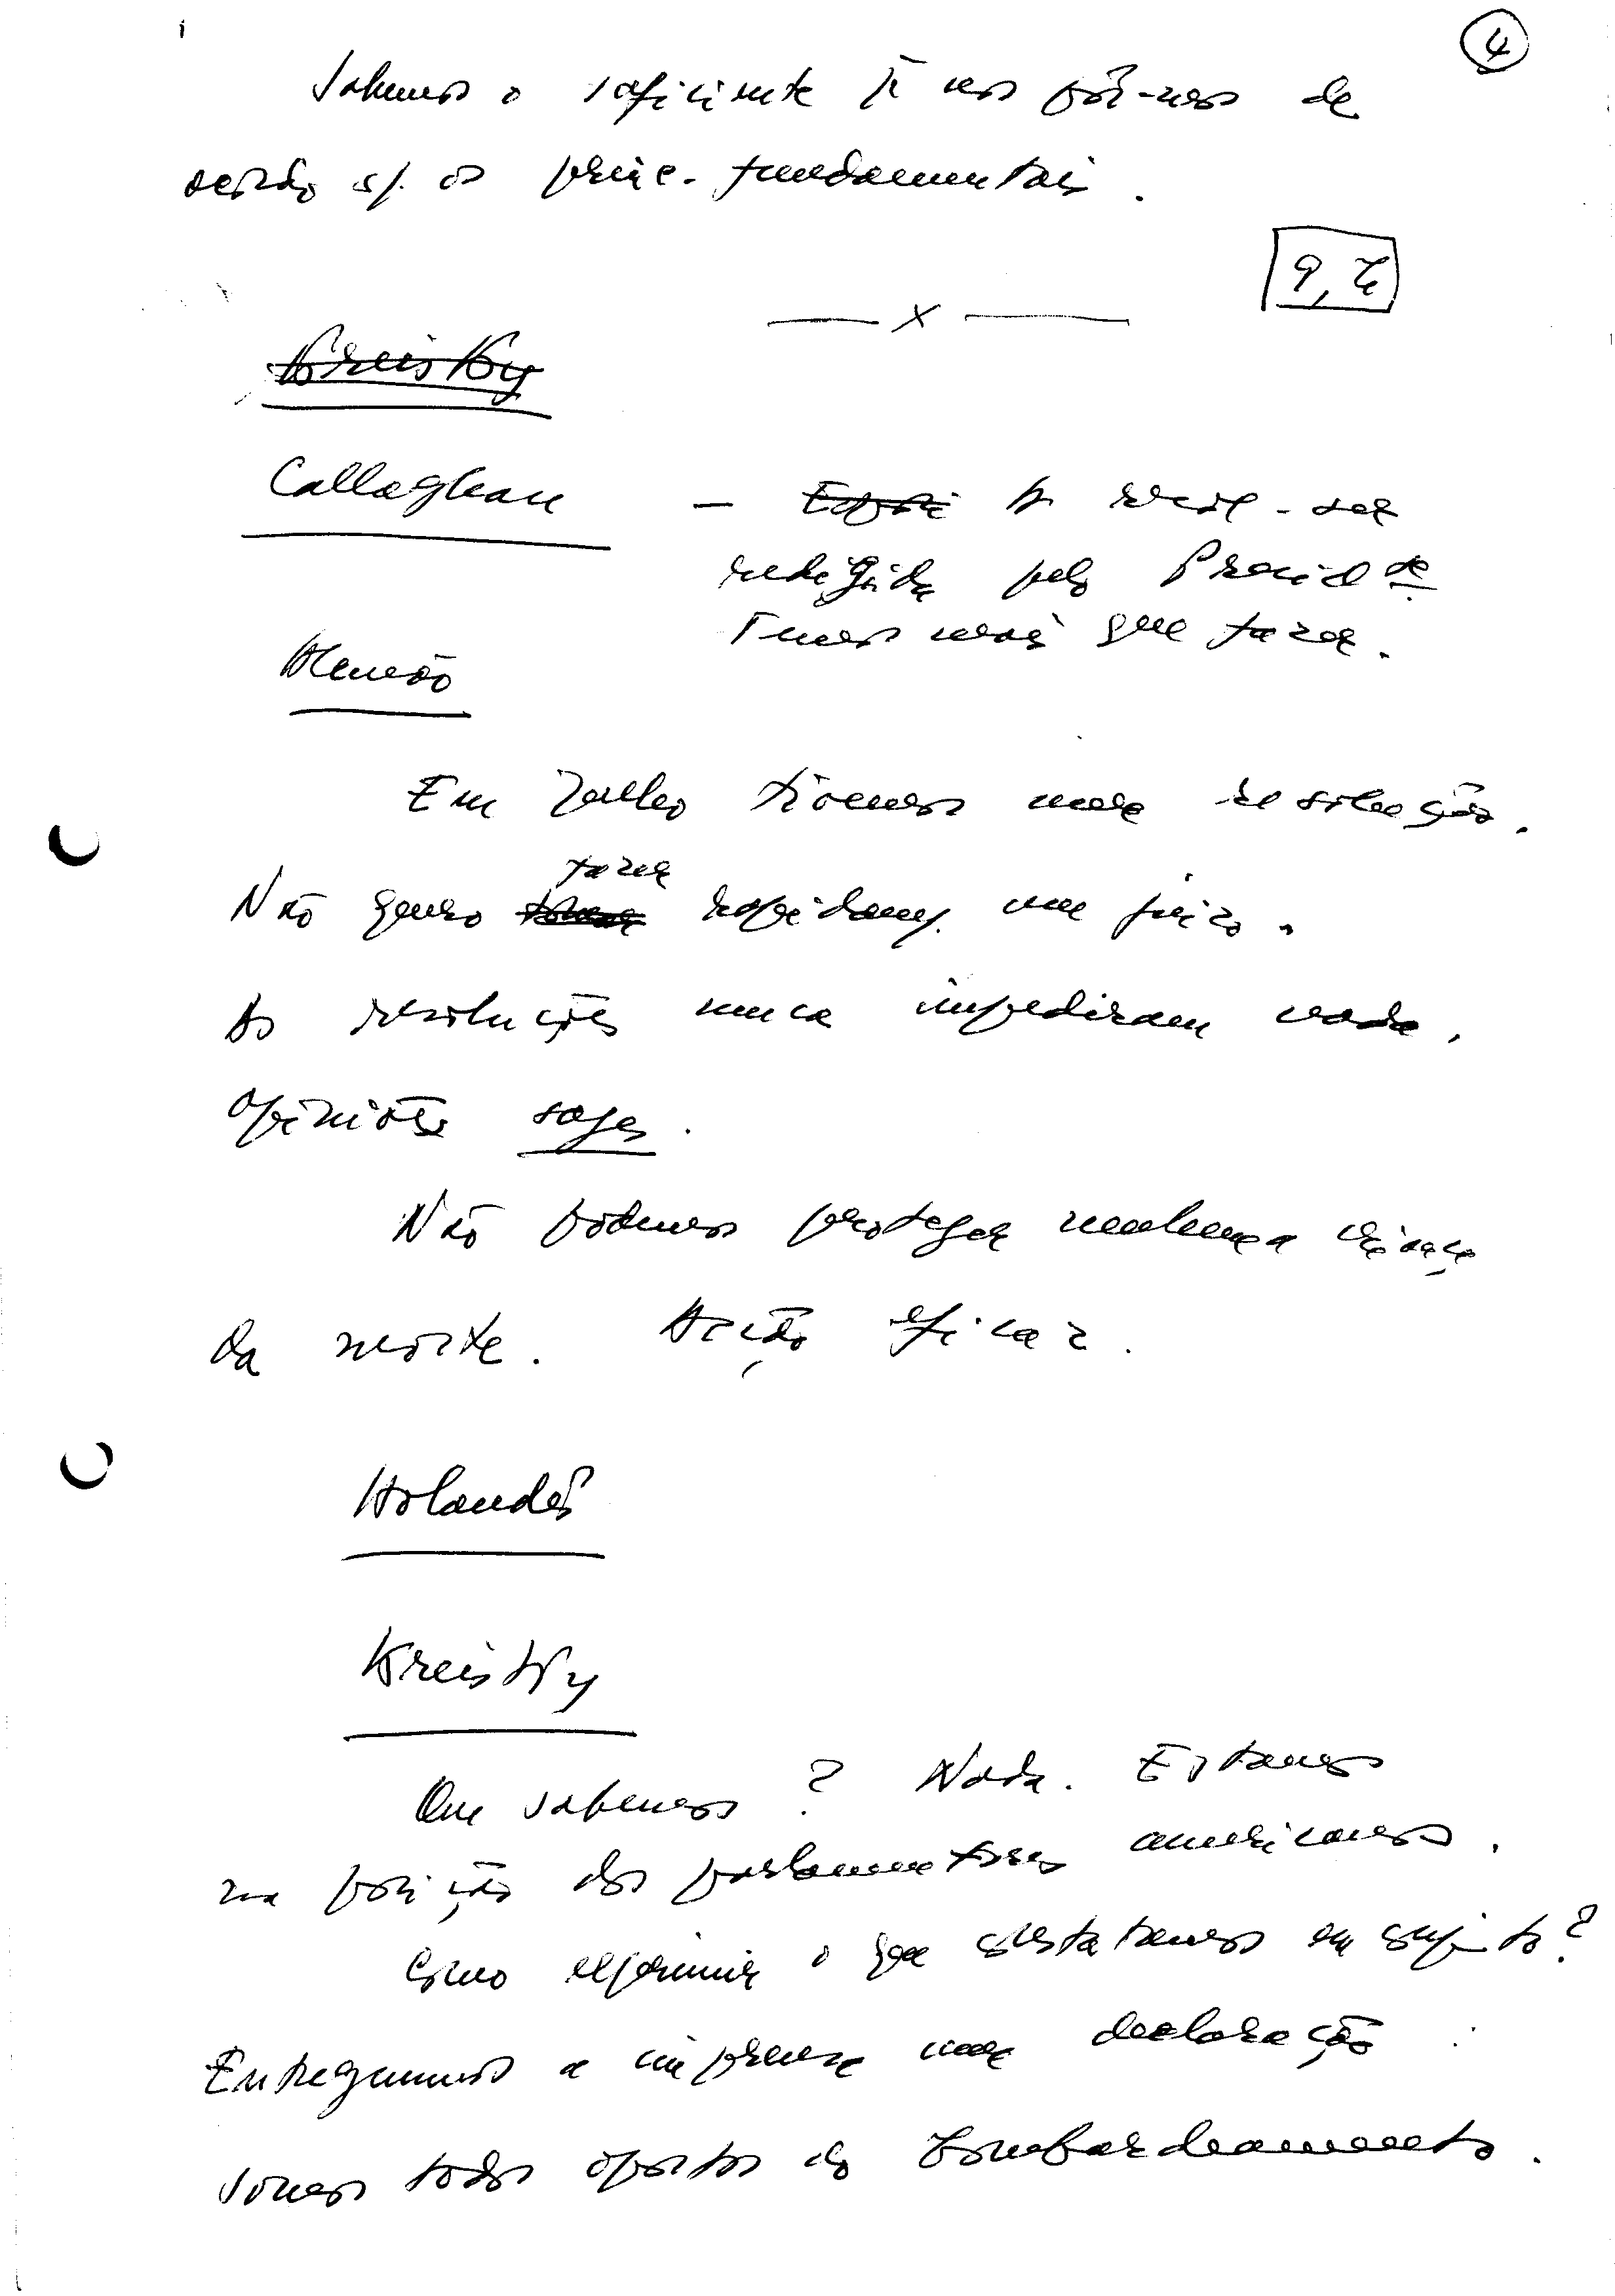 4
Sabemos o suficiente p/ nos pôr-nos de
acordo s/. os princ. fundamentais.
9,
— x —
Kreisky
Callaghan — A resol. ser
redigida pelo Presid.te
Temos mais que fazer.
Alemão
Em Julho tivemos uma resolução.
fazer
Não quero rapidam. um juizo.
As resoluções nunca impediram nada.
Opiniões sages.
Não podemos proteger nenhuma criança
da morte. Acção eficaz.
Holandês
Kreisky
Que sabemos? Nada. Estamos
na posição dos parlamentares americanos.
Como exprimir o que constatamos em conjunto?
Entreguemos a imprensa uma declaração:
somos todos opostos ao bombardeamento.